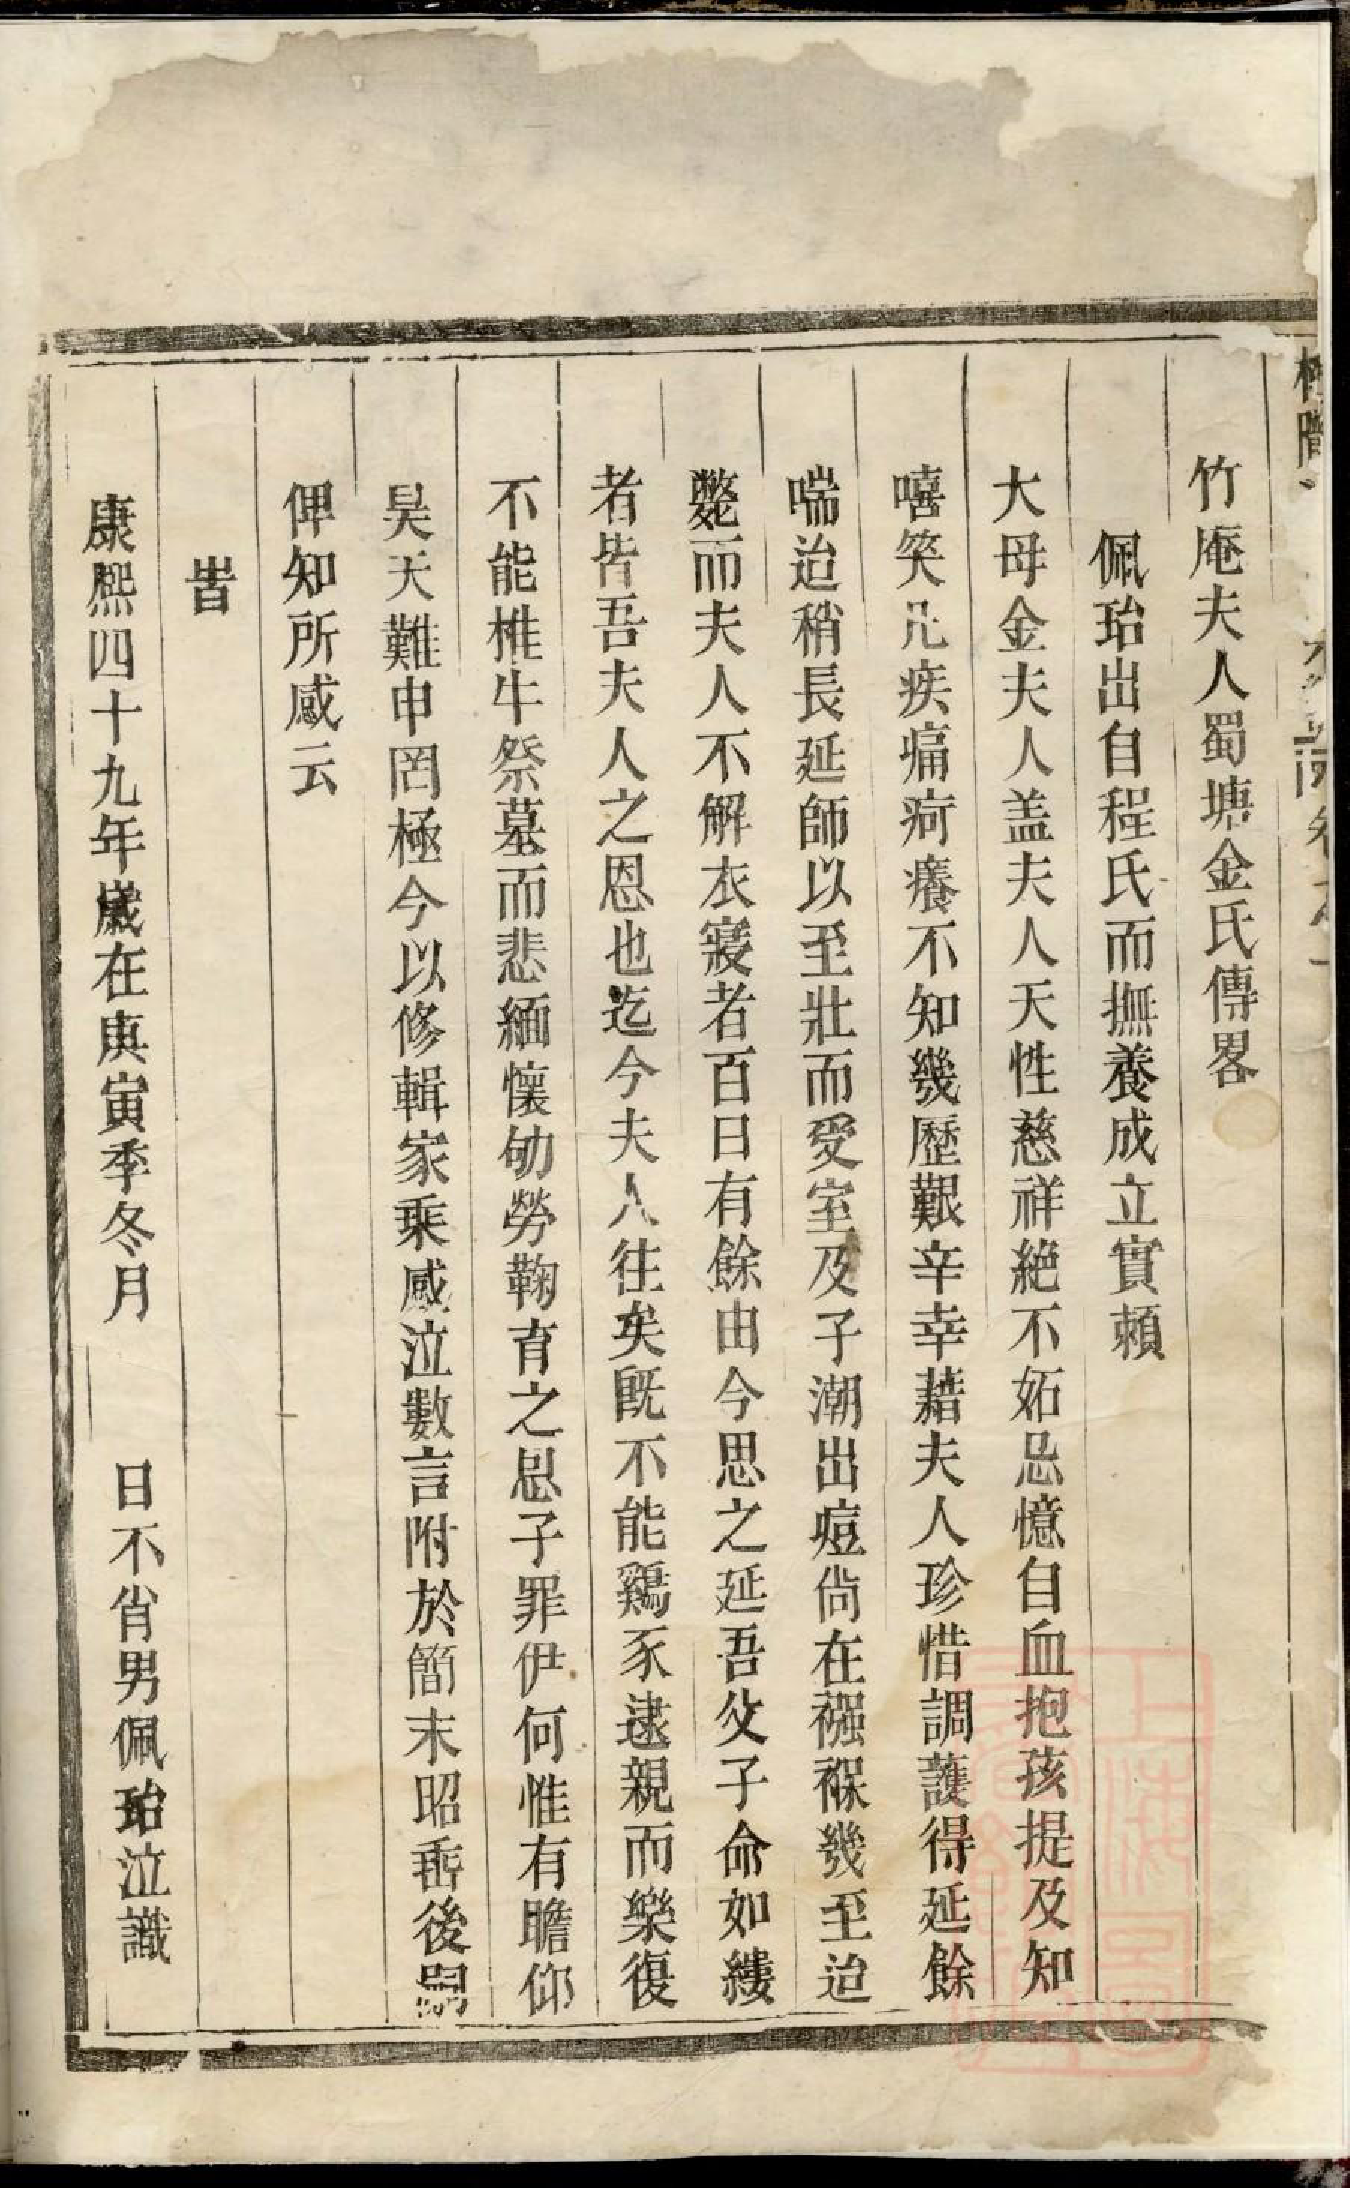 竹庵夫人蜀塘金氏傳畧
佩珆出自程氏而撫養成立實頼
大母金夫人盖夫人天性慈祥絶不妬忌憶自血抱孩提及知
嘻笑凡疾痛疴癢不知幾歷艱辛幸藉夫人珍惜調護得延餘
喘迨稍長延師以至壯而受室及子潮出痘尙在襁褓幾至迨
斃而夫人不解衣寢者百日有餘由今思之延吾父子命如縷
者皆吾夫人之恩也迄今夫人往矣旣不能鷄豕逮親而樂復
不能椎牛祭墓而悲緬懷劬勞鞠育之恩子罪伊何惟有瞻仰
昊天難申罔極今以修輯家乘感泣數言附於簡末昭垂後嗣
俾知所感云
旹
康熈四十九年歲在庚寅季冬月 日不肖男佩珆泣識